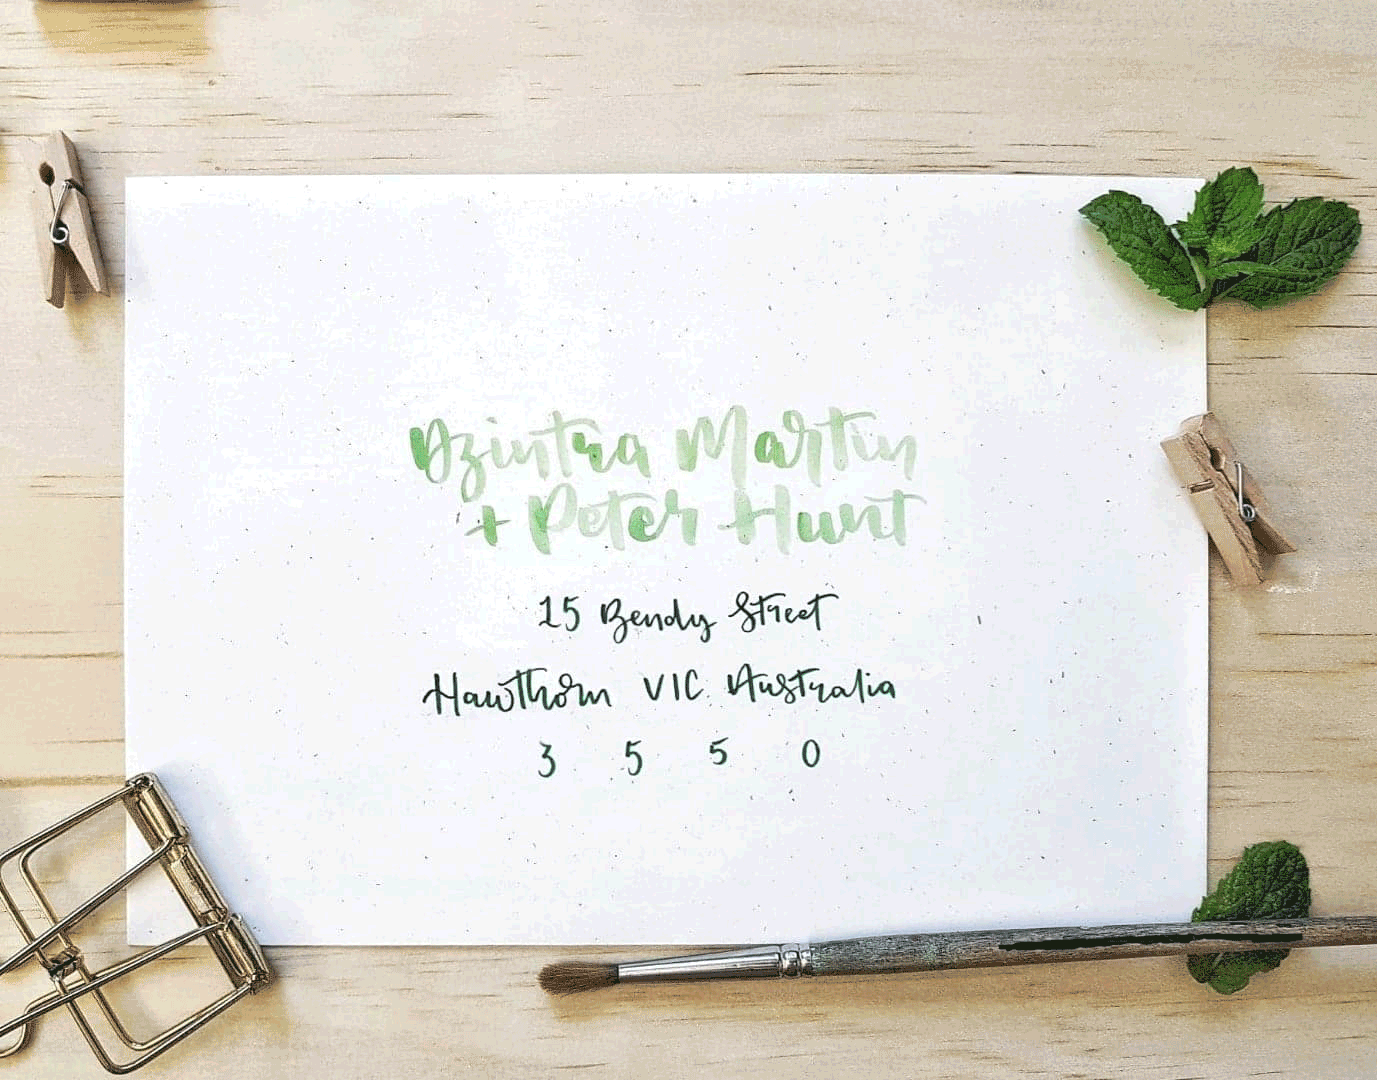 Dzintra Martin
+ Peter Hunt
15 Bendy Street
Hawthorn VIC Australia
3 5 5 0